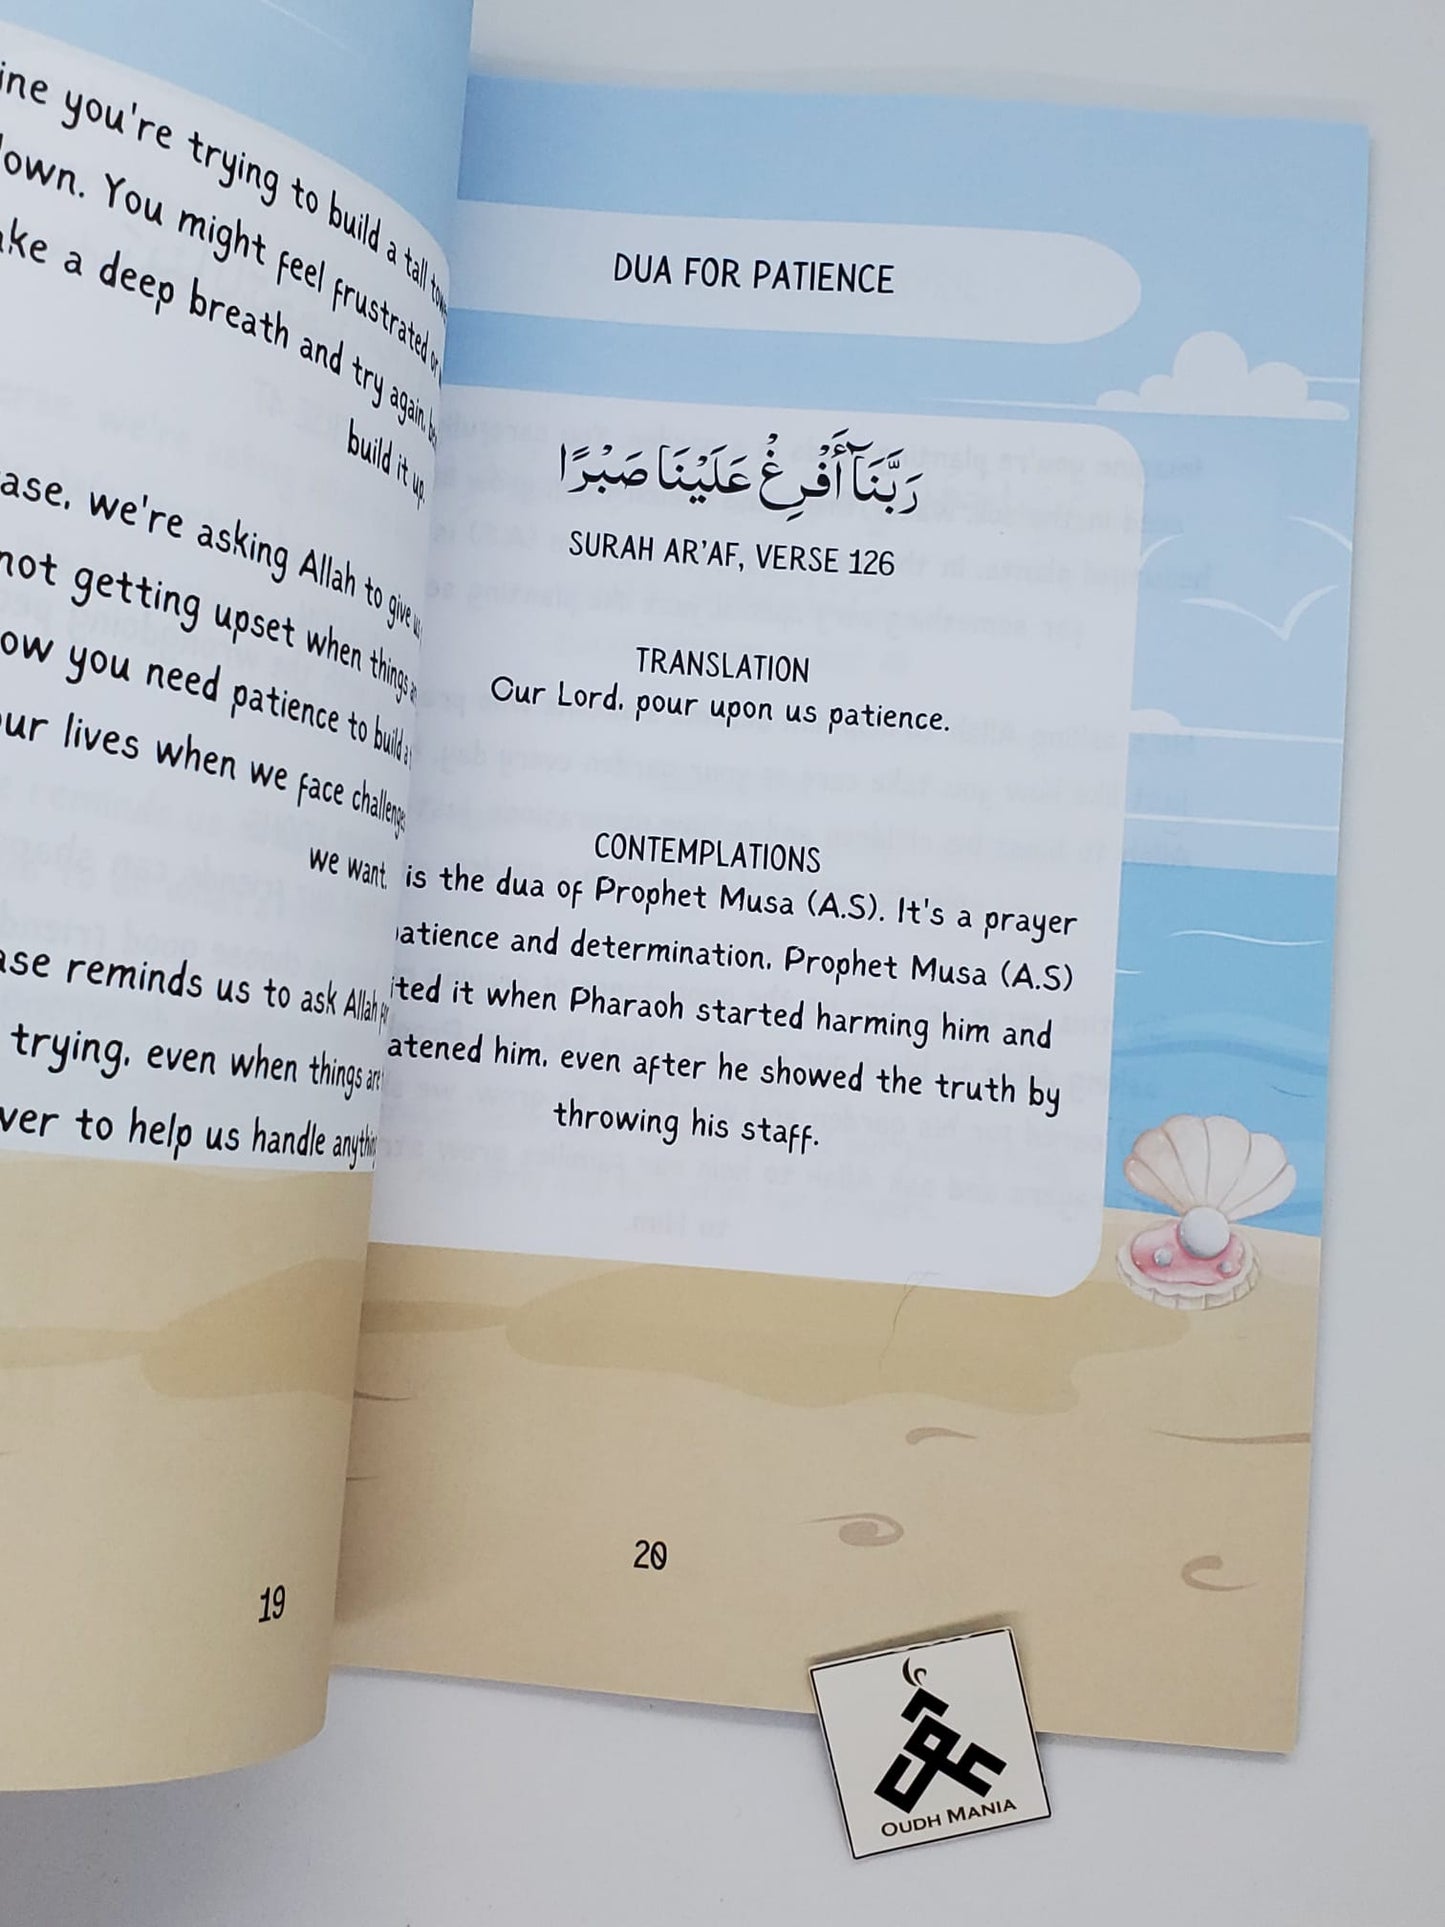 you're trying to build a tall
You might feel frustrated
a deep breath and try again.
build it up.
we're asking Allah to give
not getting upset when things
you need patience to build
lives when we face
we want.
reminds us to ask Allah
trying. even when things are
to help us handle
19
DUA FOR PATIENCE
رَبَّنَآ أَفْرِغْ عَلَيْنَا صَبْرًا
SURAH AR'AF, VERSE 126
TRANSLATION
Our Lord. pour upon us patience.
CONTEMPLATIONS
is the dua of Prophet Musa (A.S). It's a prayer
and determination. Prophet Musa (A.S)
it when Pharaoh started harming him and
him. even after he showed the truth by
throwing his staff.
20
OUDH MANIA